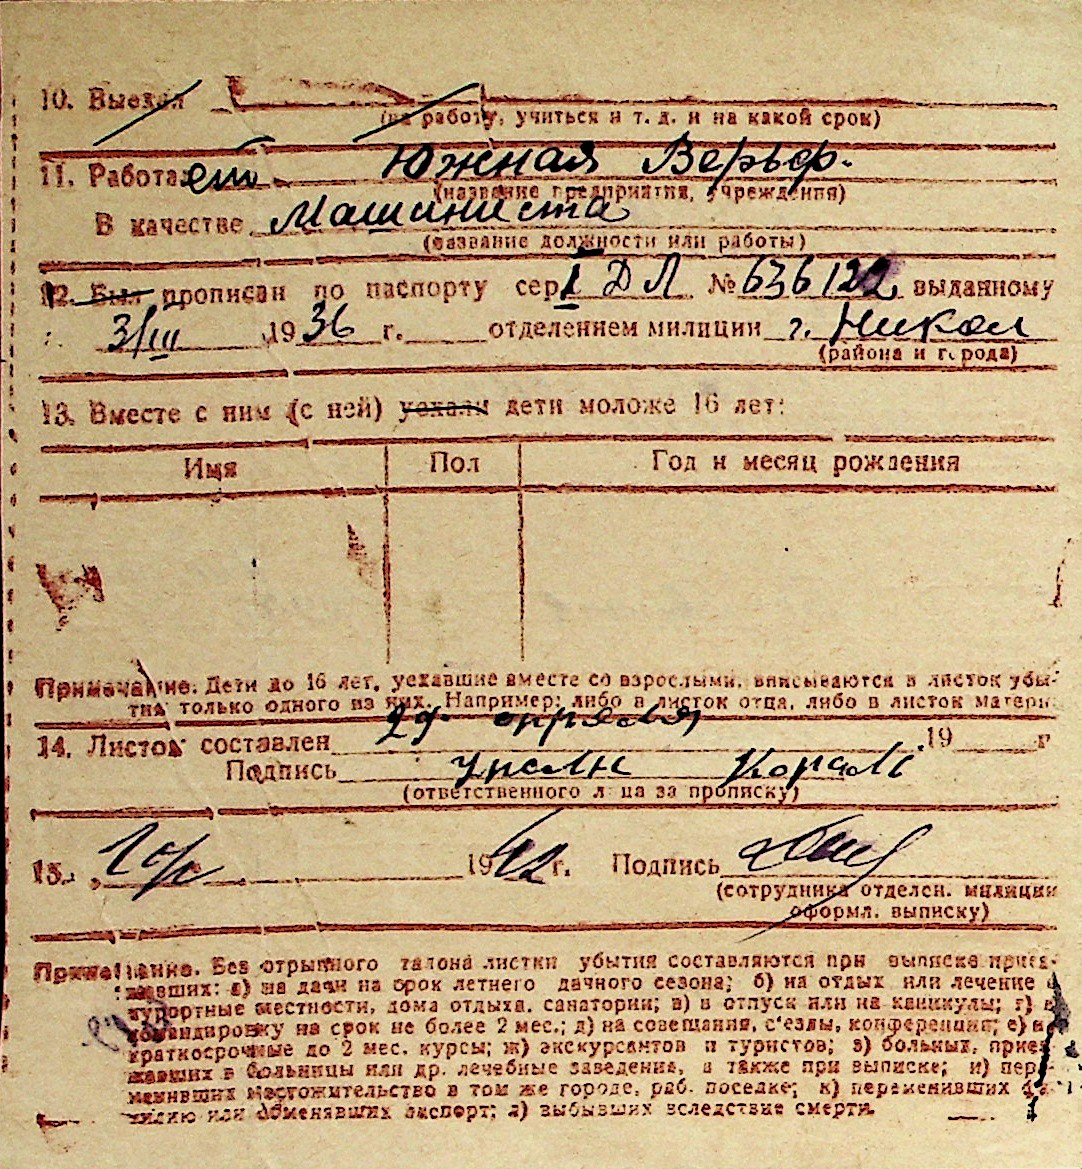 10. Выехал
(на работу, учиться и т. д. и на какой срок)
11. Работает Южная Верьф.
(название предприятия, учреждения)
В качестве Машиниста
(название должности или работы)
12. Был прописан по паспорту сер. I ДЛ № 636122 выданному
3/III 1936 г. отделением милиции г. Никол
(района и города)
13. Вместе с ним (с ней) уехали дети моложе 16 лет:
Имя Пол Год и месяц рождения
Примечание: Дети до 16 лет, уехавшие вместе со взрослыми, вписываются в листок убы-
тия только одного из них. Например: либо в листок отца, либо в листок матери.
14. Листок составлен 29. апреля 19 г
Подпись
(ответственного лица за прописку)
15. 1942 г. Подпись
(сотрудника отделен. милиции
оформл. выписку)
Примечание. Без отрывного талона листки убытия составляются при выписке приез-
жавших: а) на дачи на срок летнего дачного сезона; б) на отдых или лечение в
курортные местности, дома отдыха, санатории; в) в отпуск или на каникулы; г) в
командировку на срок не более 2 мес.; д) на совещания, с'езды, конференции; е) на
краткосрочные до 2 мес. курсы; ж) экскурсантов и туристов; з) больных, приез-
жавших в больницы или др. лечебные заведение, а также при выписке; и) пере-
менивших местожительство в том же городе, раб. поселке; к) переменивших фа-
милию или обменявших паспорт; л) выбывших вследствие смерти.